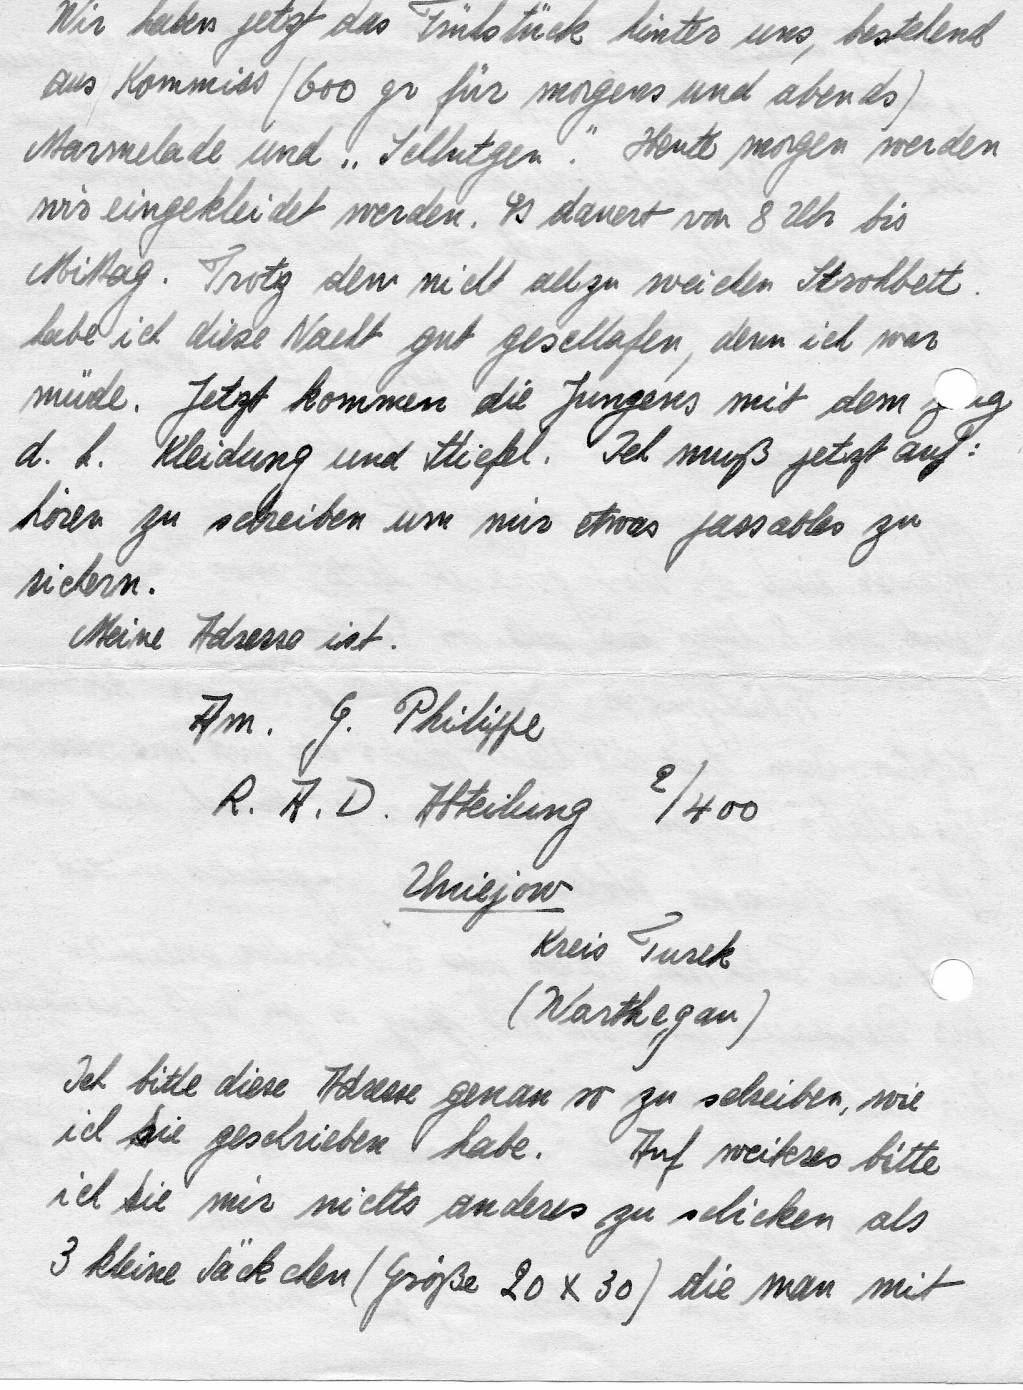 Wir haben jetzt das Frühstück hinter uns, bestehend
aus Kommiss (600 gr für morgens und abends)
Marmelade und „ ". Heute morgen werden
wir eingekleidet werden. Es dauert von 8 Uhr bis
Mittag. Trotz dem nicht allzu weichen Strohbett.
habe ich diese Nacht gut geschlafen, denn ich war
müde. Jetzt kommen die Jungens mit dem
d. h. Kleidung und Stiefel. Ich muß jetzt auf:
hören zu schreiben um mir etwas passables zu
sichern.
Meine Adresse ist.
Am. G. Philippe
R. A. D. Abteilung 2/400
Uniejow
Kreis Turek
(Warthegau)
Ich bitte diese Adresse genau so zu schreiben, wie
ich sie geschrieben habe. Auf weiteres bitte
ich sie mir nichts anderes zu schicken als
3 kleine Säckchen (Größe 20 x 30) die man mit